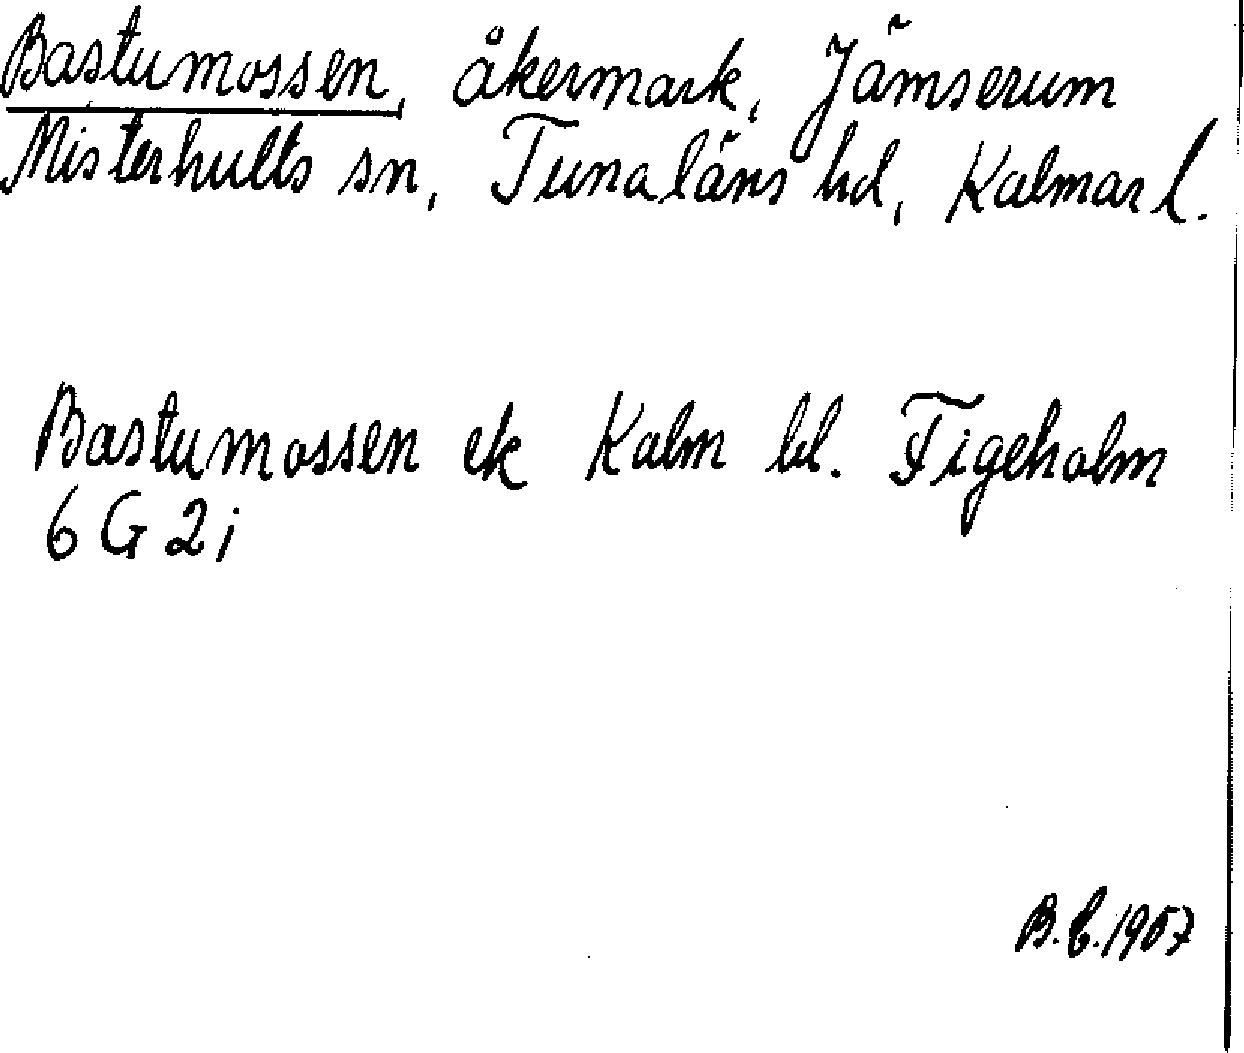 Bastumossen, åkermark, Jämserum
Misterhults sn, Tunaläns hd, Kalmar l.
Bastumossen ek Kalm bl. Figeholm
6 G 2 i
B.C. 1957